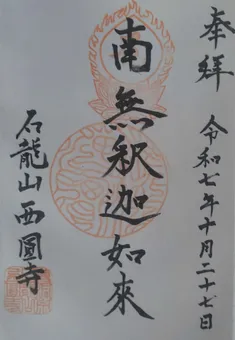 奉拜
令和七年十月二十七日
南無釈迦如來
石龍山 西圓寺